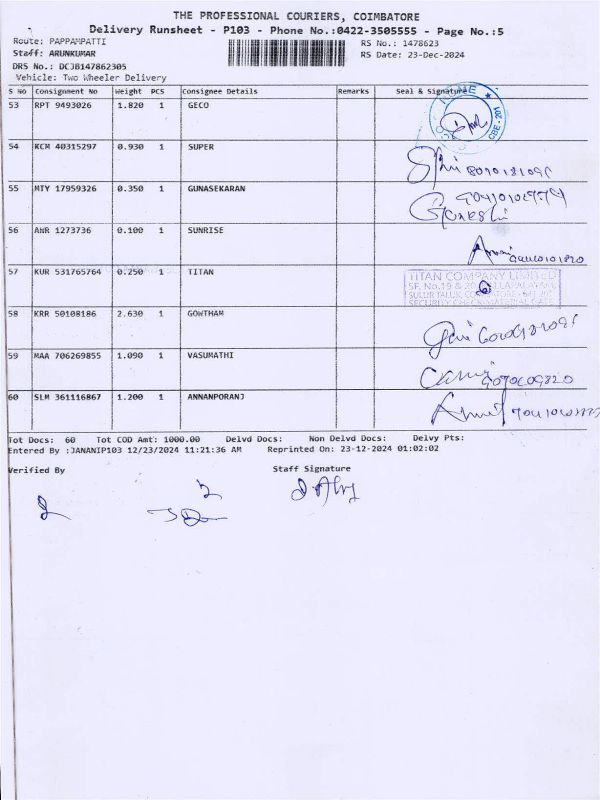 THE PROFESSIONAL COURIERS, COIMBATORE
Delivery Runsheet - P103 - Phone No.:0422-3505555 - Page No.:5
Route: PAPPAMPATTI
RS No.: 1478623
Staff: ARUNKUMAR
RS Date: 23-Dec-2024
DRS No.: DCJB147862305
Vehicle: Two Wheeler Delivery
S No Consignment No Weight PCS Consignee Details Remarks Seal & Signature
53 RPT 9493026 1.820 1 GECO
CBE - 201
54 KCM 40315297 0.930 1 SUPER
55 MTY 17959326 0.350 1 GUNASEKARAN
56 AHR 1273736 0.100 1 SUNRISE
57 KUR 531765764 0.250 1 TITAN
TITAN COMPANY LIMITED
58 KRR 50108186 2.630 1 GOWTHAM
59 MAA 706269855 1.090 1 VASUMATHI
60 SLM 361116867 1.200 1 ANNANPORANJ
Tot Docs: 60 Tot COD Amt: 1000.00 Delvd Docs: Non Delvd Docs: Delvy Pts:
Entered By :JANANIP103 12/23/2024 11:21:36 AM Reprinted On: 23-12-2024 01:02:02
Verified By Staff Signature